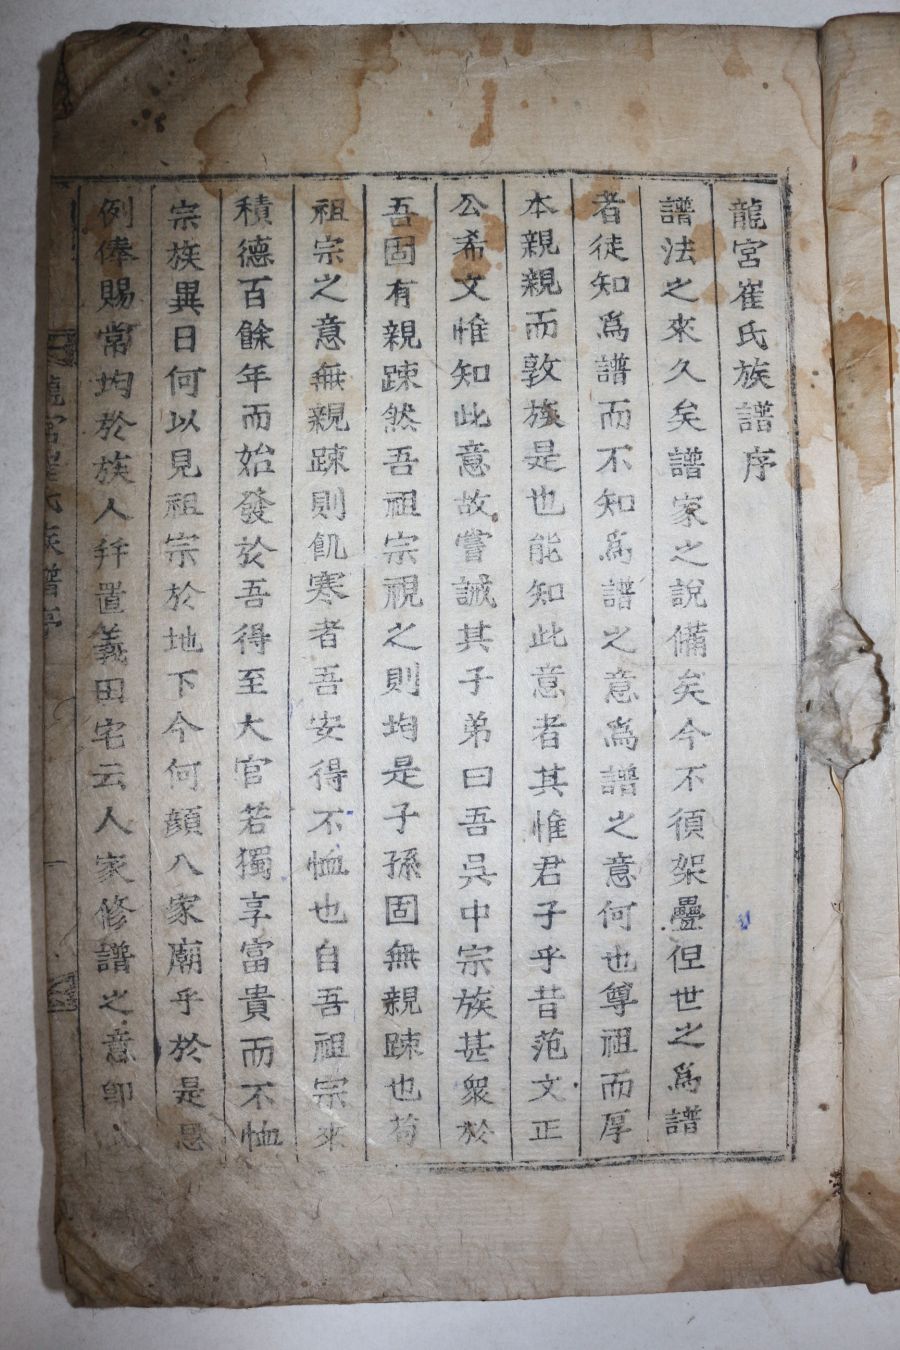 龍宮崔氏族譜序
譜法之來久矣譜家之說備矣今不須架疊但世之爲譜
者徒知爲譜而不知爲譜之意爲譜之意何也尊祖而厚
本親親而敦族是也能知此意者其惟君子乎昔范文正
公希文惟知此意故嘗誡其子弟曰吾吳中宗族甚衆於
吾固有親踈然吾祖宗視之則均是子孫固無親踈也苟
祖宗之意無親踈則飢寒者吾安得不恤也自吾祖宗來
積德百餘年而始發於吾得至大官若獨享富貴而不恤
宗族異日何以見祖宗於地下今何顔入家廟乎於是恩
例俸賜常均於族人幷置義田宅云人家修譜之意卽
龍宮崔氏族譜序
一